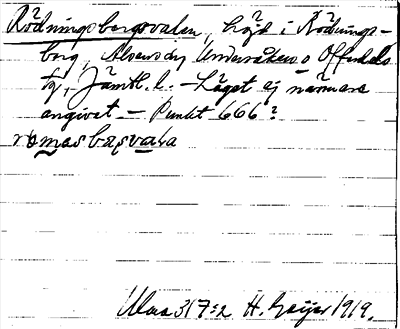 Rödningsbergsvalen, höjd i Rödnings-
berg, Alsens sn, Undersåkers o Offerdals
tg, Jämtl. l. – Läget ej närmare
angivet – Punkt 666?
römasbaṣvala
Ulma 317:2 H. Geijer 1919.